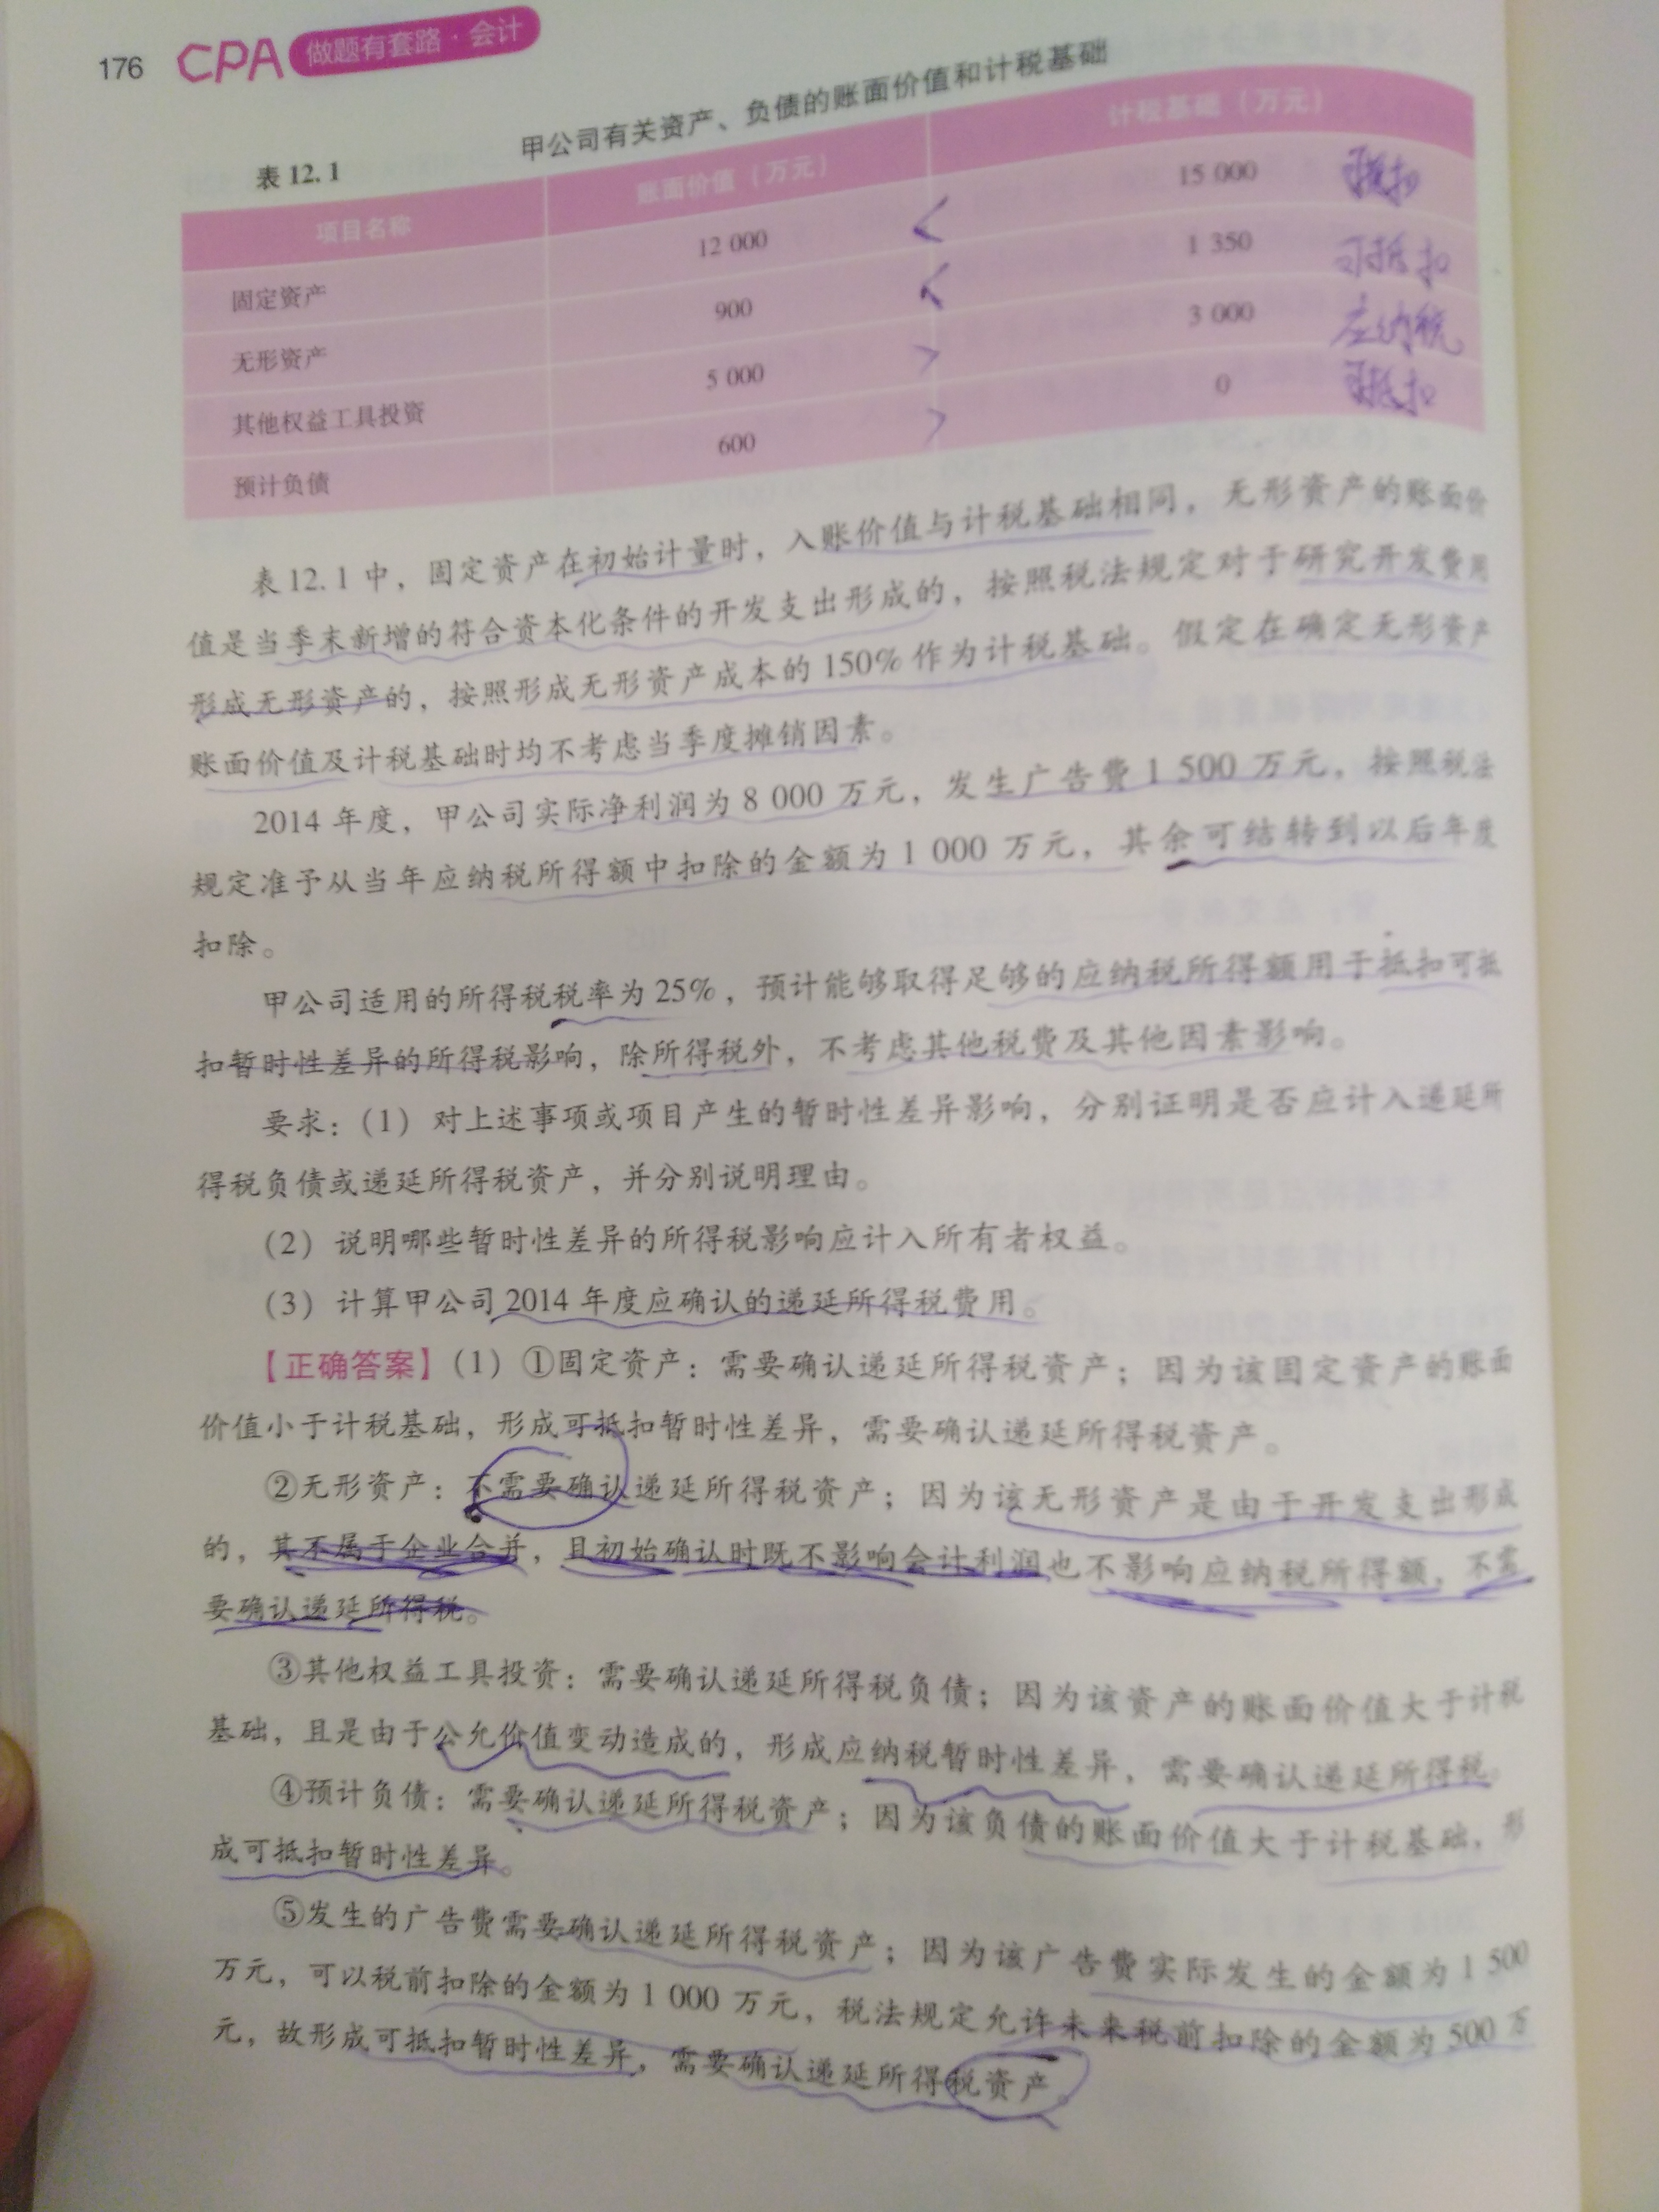 176 CPA 做题有套路·会计
表 12.1 甲公司有关资产、负债的账面价值和计税基础
项目名称 账面价值（万元） 计税基础（万元）
固定资产 12 000 < 15 000 可抵扣
无形资产 900 < 1 350 可抵扣
其他权益工具投资 5 000 > 3 000 应纳税
预计负债 600 > 0 可抵扣
表 12.1 中，固定资产在初始计量时，入账价值与计税基础相同，无形资产的账面价
值是当季末新增的符合资本化条件的开发支出形成的，按照税法规定对于研究开发费用
形成无形资产的，按照形成无形资产成本的 150% 作为计税基础。假定在确定无形资产
账面价值及计税基础时均不考虑当季度摊销因素。
2014 年度，甲公司实际净利润为 8 000 万元，发生广告费 1 500 万元，按照税法
规定准予从当年应纳税所得额中扣除的金额为 1 000 万元，其余可结转到以后年度
扣除。
甲公司适用的所得税税率为 25%，预计能够取得足够的应纳税所得额用于抵扣可抵
扣暂时性差异的所得税影响，除所得税外，不考虑其他税费及其他因素影响。
要求：（1）对上述事项或项目产生的暂时性差异影响，分别证明是否应计入递延所
得税负债或递延所得税资产，并分别说明理由。
（2）说明哪些暂时性差异的所得税影响应计入所有者权益。
（3）计算甲公司 2014 年度应确认的递延所得税费用。
【正确答案】（1）①固定资产：需要确认递延所得税资产；因为该固定资产的账面
价值小于计税基础，形成可抵扣暂时性差异，需要确认递延所得税资产。
②无形资产：不需要确认递延所得税资产；因为该无形资产是由于开发支出形成
的，其不属于企业合并，且初始确认时既不影响会计利润也不影响应纳税所得额，不需
要确认递延所得税。
③其他权益工具投资：需要确认递延所得税负债；因为该资产的账面价值大于计税
基础，且是由于公允价值变动造成的，形成应纳税暂时性差异，需要确认递延所得税。
④预计负债：需要确认递延所得税资产；因为该负债的账面价值大于计税基础，形
成可抵扣暂时性差异。
⑤发生的广告费需要确认递延所得税资产；因为该广告费实际发生的金额为 1 500
万元，可以税前扣除的金额为 1 000 万元，税法规定允许未来税前扣除的金额为 500 万
元，故形成可抵扣暂时性差异，需要确认递延所得税资产。